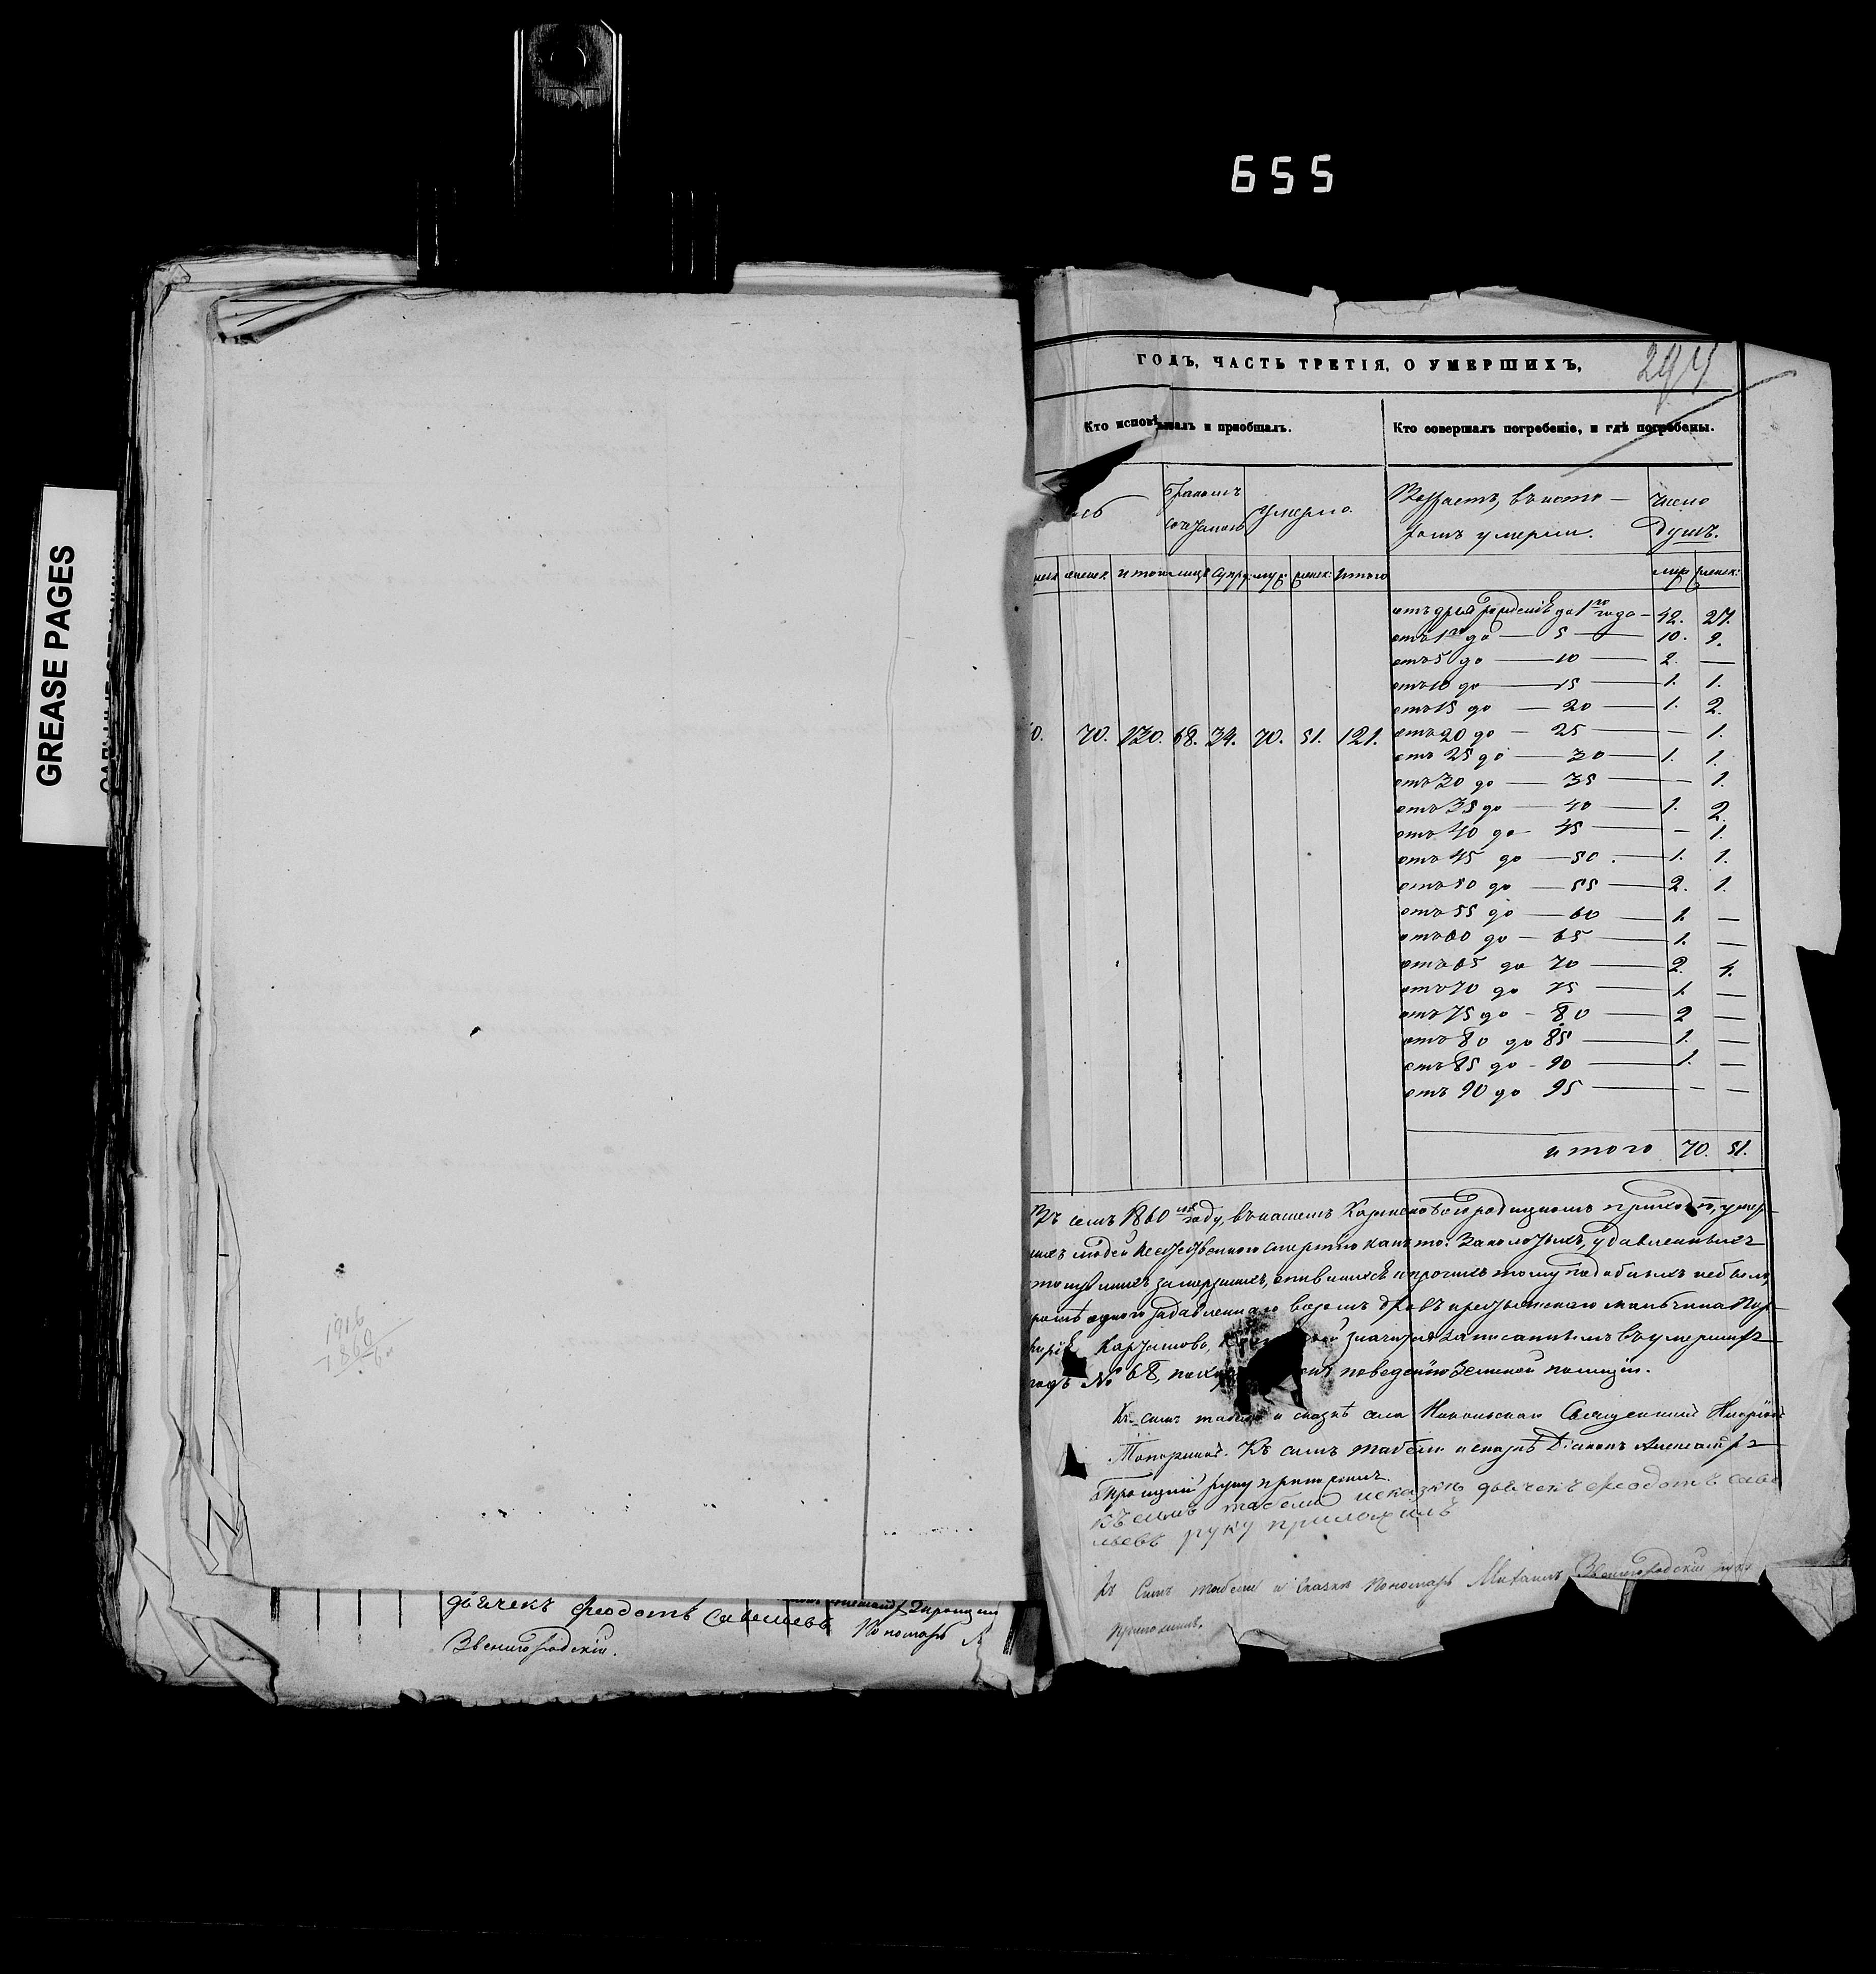 655
GREASE PAGES
ГОДЪ, ЧАСТЬ ТРЕТІЯ, О УМЕРШИХЪ,
Кто исповѣдывалъ и приобщалъ.
Кто совершалъ погребеніе, и гдѣ погребены.
Бракомъ сочетанъ
умерло.
Возрастъ, въ кото-
ромъ умерли.
Число
душъ.
женск итого лицъ супр: муж: женск: итого
муж женск:
отъ дня рожденія до 1го года — 42. 27.
отъ 1го до — 5 — 10. 9.
отъ 5 до — 10 — 2. —
отъ 10 до — 15 — 1. 1.
отъ 15 до — 20 — 1. 2.
0. 70. 130. 68. 34. 70. 51. 121.
отъ 20 до — 25 — — 1.
отъ 25 до — 30 — 1. 1.
отъ 30 до — 35 — — 1.
отъ 35 до — 40 — 1. 2.
отъ 40 до — 45 — — 1.
отъ 45 до — 50. — 1. 1.
отъ 50 до — 55 — 2. 1.
отъ 55 до — 60 — 1. —
отъ 60 до — 65 — 1. —
отъ 65 до 70 — 2. 4.
отъ 70 до 75 — 1. —
отъ 75 до — 80 — 2 —
отъ 80 до 85 — 1. —
отъ 85 до — 90 — 1. —
отъ 90 до 95 — — —
итого 70. 51.
Въ семъ 1860мъ году, въ нашемъ приходѣ, умер-
шихъ людей неестественною смертію какъ то: заколотыхъ, удавленныхъ
замерзшихъ, опившихся и прочихъ тому подобныхъ не было,
кромѣ одного задавленнаго возомъ дровъ крестьянскаго мальчика Пор-
фирія значится записаннымъ въ умершихъ
подъ № 68, по земской полиціи.
Къ симъ табели и сказкѣ села Никольскаго Священникъ
Топорковъ. Къ симъ табели и сказкѣ Діаконъ Александръ
Троицкій руку приложилъ.
Къ симъ табели и сказкѣ дьячекъ Феодотъ Саве
льевъ руку приложилъ
Къ симъ табели и сказкѣ пономарь Михаилъ Звенигородскій руку
приложилъ.
1916
1860
дьячекъ Феодотъ Савельевъ
Пономарь
Звенигородскій.